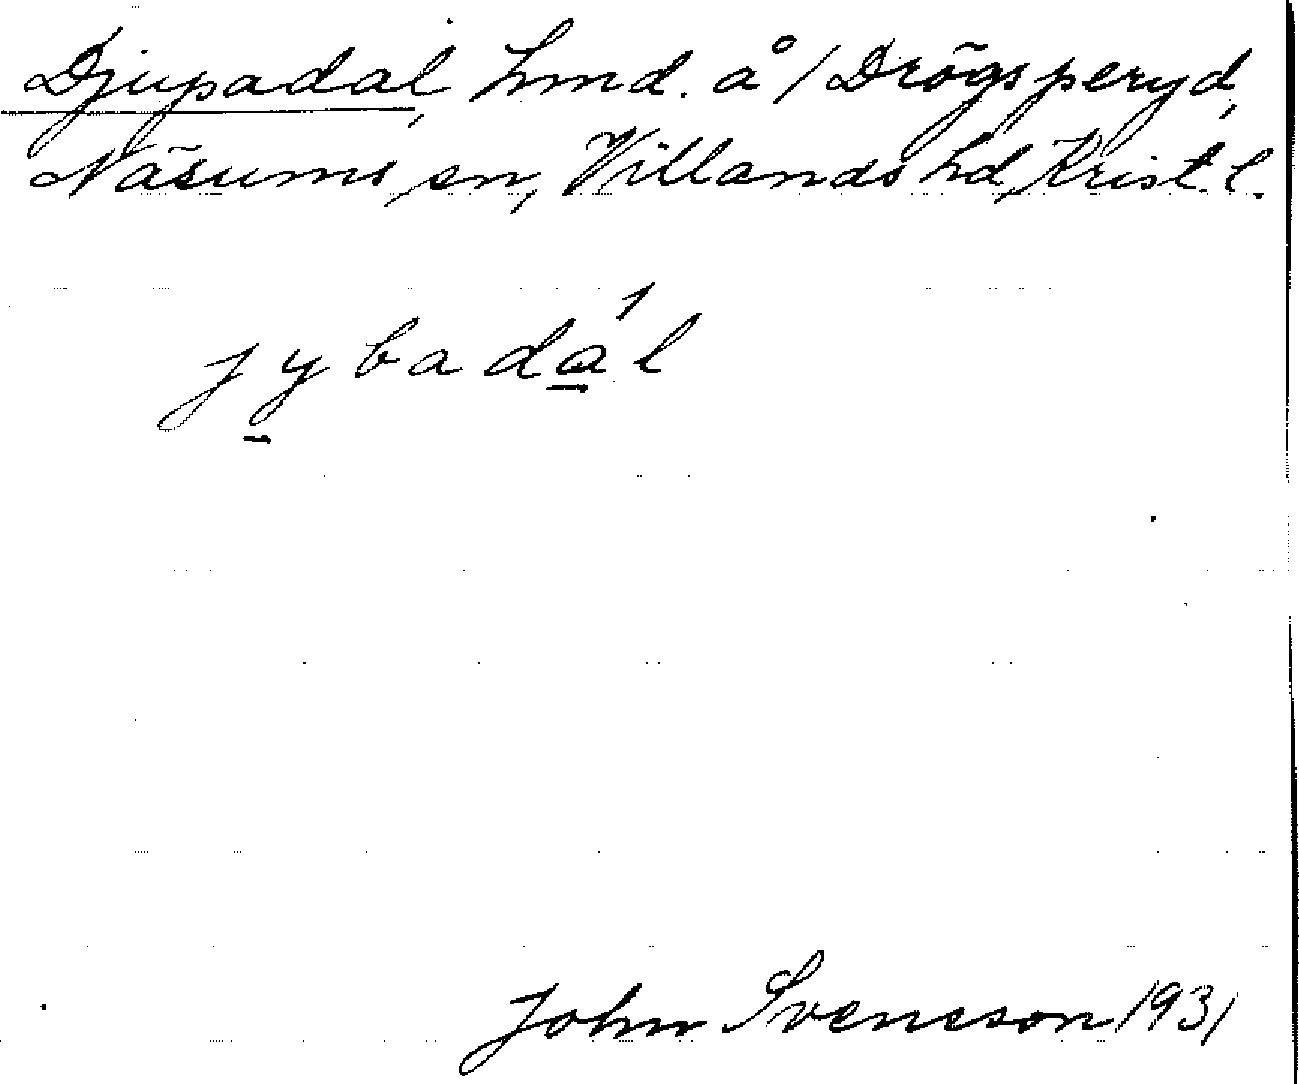 Djupadal, hmd. å / Drögsperyd,
Näsums sn, Villands hd, Krist. l.
jybadál
John Svenson 1931